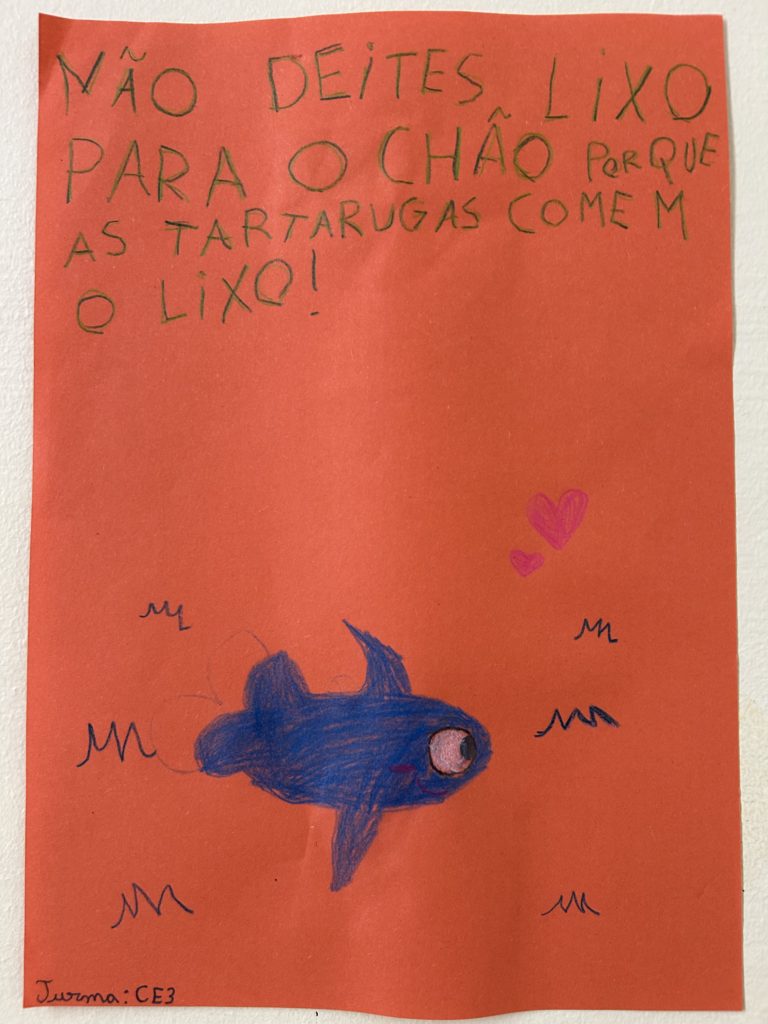 NÃO DEiTES LiXO
PARA O CHÂO PORQUE
AS TARTARUGAS COMEM
O LiXO!
Turma: CE3